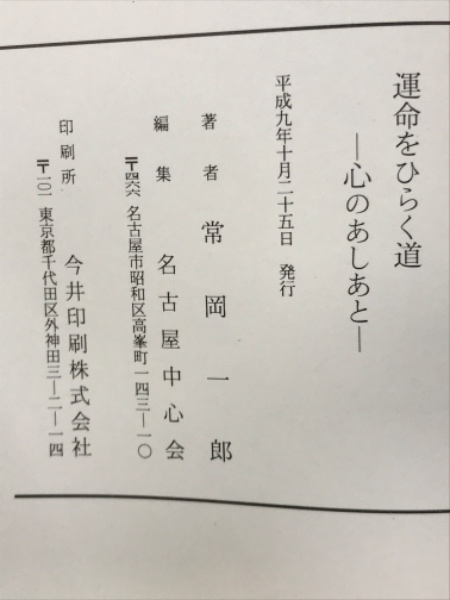 運命をひらく道
―心のあしあと―
平成九年十月二十五日 発行
著者 常岡一郎
編集 名古屋中心会
〒四六六 名古屋市昭和区高峯町一四三―一〇
印刷所 今井印刷株式会社
〒一〇一 東京都千代田区外神田三―二―一四